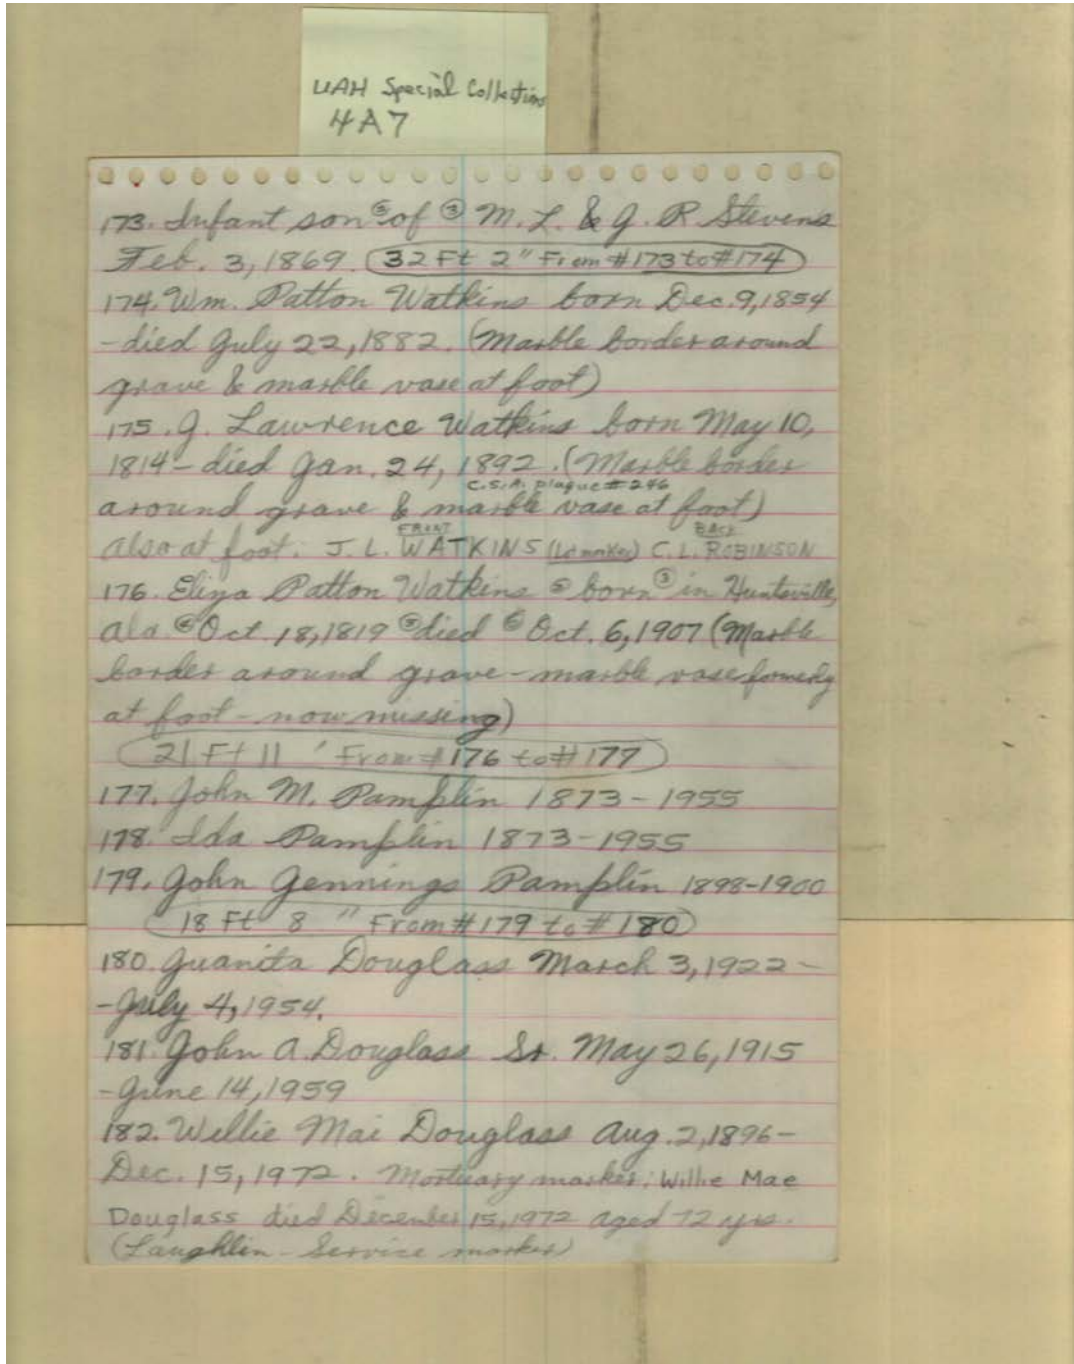 UAH Special Collections
4A7
173. Infant son ⑤ of ③ M. L. & J. R Stevens
Feb. 3, 1869. (32 Ft 2" From #173 to #174)
174. Wm. Patton Watkins born Dec. 9, 1854
- died July 22, 1882. (Marble border around
grave & marble vase at foot)
175. J. Lawrence Watkins born May 10,
1814 - died Jan. 24, 1892. (Marble border
C.S.A. plaque #246
around grave & marble vase at foot)
FRONT BACK
also at foot: J. L. WATKINS C. L. ROBINSON
176. Eliza Patton Watkins ⑤ born ③ in Huntsville,
Ala ④ Oct. 18, 1819 ⑤ died ⑥ Oct. 6, 1907 (Marble
border around grave - marble vase fomerly
at foot - now missing)
(21 Ft 11 ' From #176 to #177)
177. John M. Pamplin 1873 - 1955
178. Ida Pamplin 1873 - 1955
179. John Jennings Pamplin 1898-1900
(18 Ft 8 " From #179 to #180)
180. Juanita Douglass March 3, 1922 -
- July 4, 1954.
181. John A. Douglass Sr. May 26, 1915
- June 14, 1959
182. Willie Mai Douglass Aug. 2, 1896 -
Dec. 15, 1972. Mortuary marker: Willie Mae
Douglass died December 15, 1972 aged 72 yrs.
(Laughlin - Service marker)